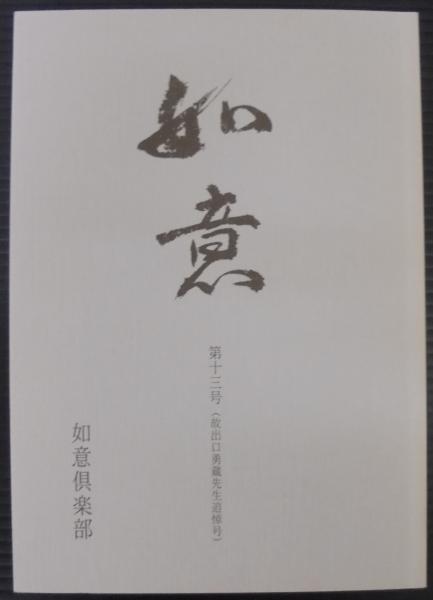 如意
第十三号（故出口勇蔵先生追悼号）
如意倶楽部